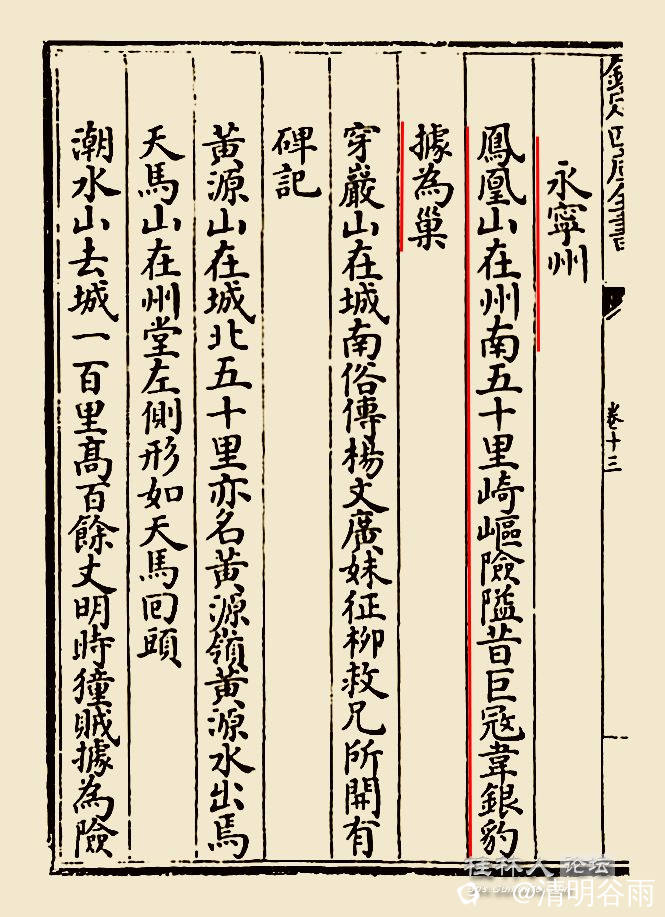 欽定四庫全書
卷十三
永寧州
鳳凰山在州南五十里崎嶇險隘昔巨冦韋銀豹
據為巢
穿巖山在城南俗傳楊文廣妹征柳救兄所開有
碑記
黃源山在城北五十里亦名黃源嶺黃源水出焉
天馬山在州堂左側形如天馬囘頭
潮水山去城一百里髙百餘丈明時獞賊據為險
桂林人论坛
@清明谷雨